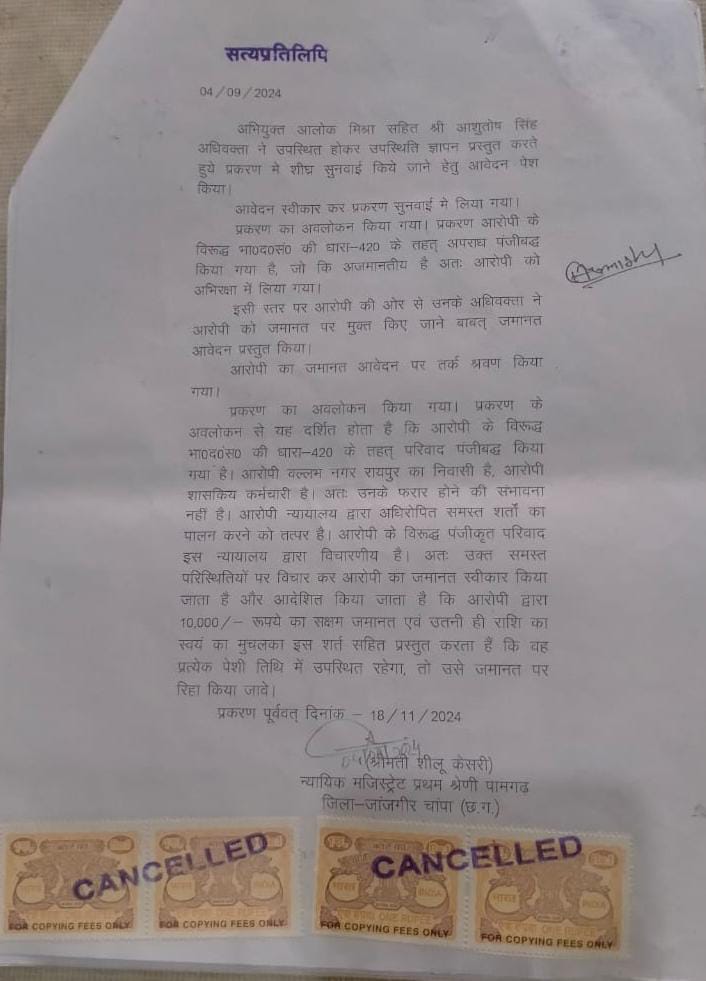 सत्यप्रतिलिपि
04/09/2024
अभियुक्त आलोक मिश्रा सहित श्री आशुतोष सिंह
अधिवक्ता ने उपस्थित होकर उपस्थिति ज्ञापन प्रस्तुत करते
हुये प्रकरण मे शीघ्र सुनवाई किये जाने हेतु आवेदन पेश
किया।
आवेदन स्वीकार कर प्रकरण सुनवाई मे लिया गया।
प्रकरण का अवलोकन किया गया। प्रकरण आरोपी के
विरूद्ध भा0द0सं0 की धारा-420 के तहत् अपराध पंजीबद्ध
किया गया है, जो कि अजमानतीय है अतः आरोपी को
अभिरक्षा में लिया गया।
इसी स्तर पर आरोपी की ओर से उनके अधिवक्ता ने
आरोपी को जमानत पर मुक्त किए जाने बाबत् जमानत
आवेदन प्रस्तुत किया।
आरोपी का जमानत आवेदन पर तर्क श्रवण किया
गया।
प्रकरण का अवलोकन किया गया। प्रकरण के
अवलोकन से यह दर्शित होता है कि आरोपी के विरूद्ध
भा0द0सं0 की धारा-420 के तहत् परिवाद पंजीबद्ध किया
गया है। आरोपी वल्लभ नगर रायपुर का निवासी है, आरोपी
शासकिय कर्मचारी है। अतः उनके फरार होने की संभावना
नहीं है। आरोपी न्यायालय द्वारा अधिरोपित समस्त शर्तों का
पालन करने को तत्पर है। आरोपी के विरूद्ध पंजीकृत परिवाद
इस न्यायालय द्वारा विचारणीय है। अतः उक्त समस्त
परिस्थितियों पर विचार कर आरोपी का जमानत स्वीकार किया
जाता है और आदेशित किया जाता है कि आरोपी द्वारा
10,000/- रूपये का सक्षम जमानत एवं उतनी ही राशि का
स्वयं का मुचलका इस शर्त सहित प्रस्तुत करता हैं कि वह
प्रत्येक पेशी तिथि में उपस्थित रहेगा, तो उसे जमानत पर
रिहा किया जावे।
प्रकरण पूर्ववत् दिनांक - 18/11/2024
(श्रीमती शीलू केसरी)
न्यायिक मजिस्ट्रेट प्रथम श्रेणी पामगढ़
जिला-जांजगीर चांपा (छ.ग.)
CANCELLED CANCELLED
भारत INDIA भारत INDIA भारत INDIA
ONE RUPEE ONE RUPEE ONE RUPEE
FOR COPYING FEES ONLY FOR COPYING FEES ONLY FOR COPYING FEES ONLY FOR COPYING FEES ONLY